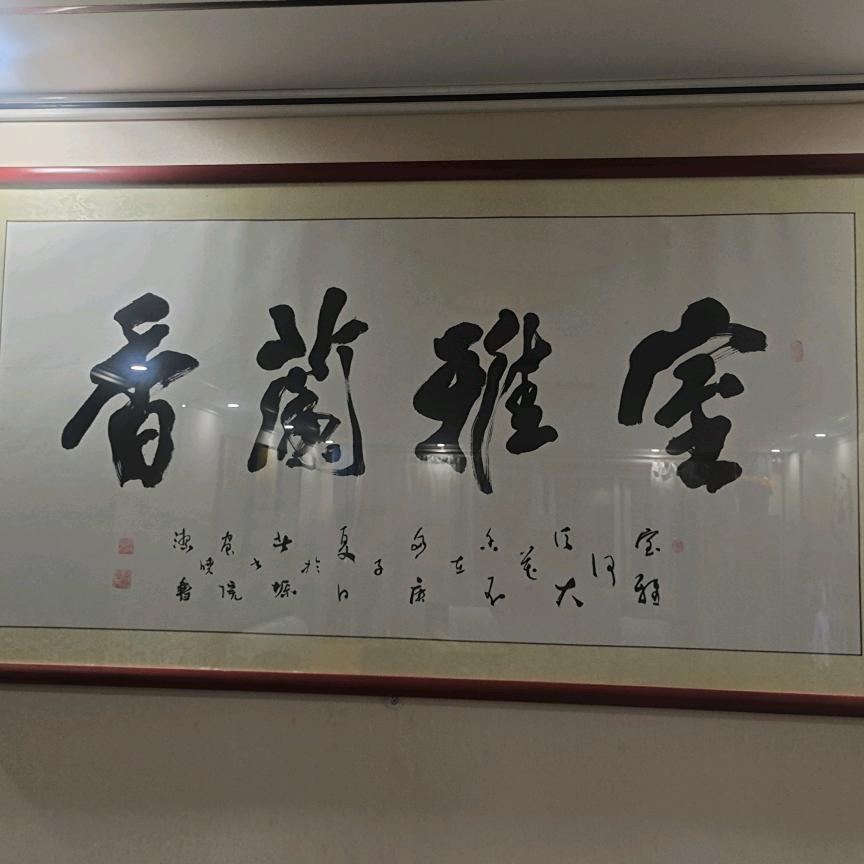 室雅蘭香
室雅何須大花香不在多庚子夏日於